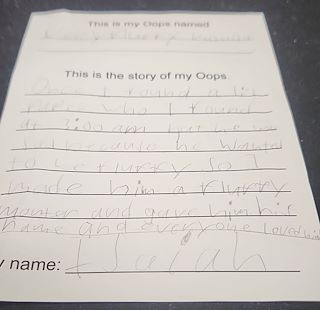 This is my Oops named
This is the story of my Oops.
Once I found a
who I found
at 3:00 am but he
sad because he wanted
to be flurry so I
made him a flurry
monter and gave him his
name and everyone loved him
y name: Isaiah